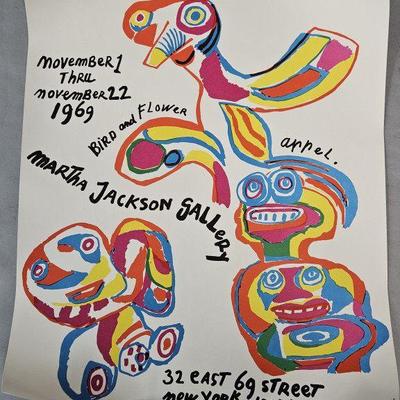 november 1
THRU
november 22
1969
BIRD and FLOWER
appel.
MARTHA JACKSON GALLERY
32 EAST 69 STREET
new YORK